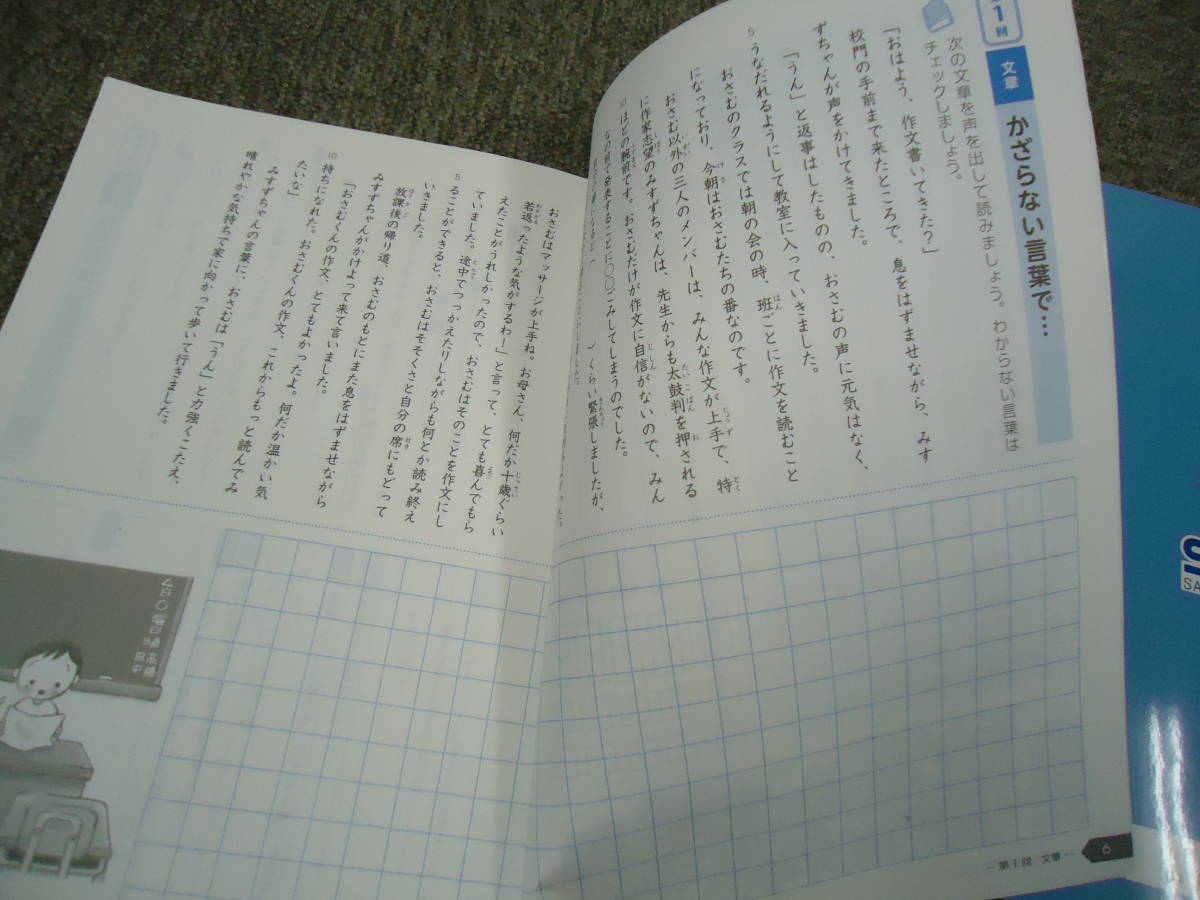 1回
文章
かざらない言葉で…
次の文章を声を出して読みましょう。わからない言葉は
チェックしましょう。
「おはよう、作文書いてきた？」
校門の手前まで来たところで、息をはずませながら、みす
ずちゃんが声をかけてきました。
「うん」と返事はしたものの、おさむの声に元気はなく、
5 うなだれるようにして教室に入っていきました。
おさむのクラスでは朝の会の時、班ごとに作文を読むこと
になっており、今朝はおさむたちの番なのです。
おさむ以外の三人のメンバーは、みんな作文が上手で、特
に作家志望のみすずちゃんは、先生からも太鼓判を押される
10 ほどの腕前です。おさむだけが作文に自信がないので、みん
なの前で発表することに〇〇ごみしてしまうのでした。
くらい緊張しましたが、
おさむはマッサージが上手ね。お母さん、何だか十歳ぐらい
若返ったような気がするわー」と言って、とても喜んでもら
えたことがうれしかったので、おさむはそのことを作文にし
ていました。途中でつっかえたりしながらも何とか読み終え
5 ることができると、おさむはそそくさと自分の席にもどって
いきました。
放課後の帰り道、おさむのもとにまた息をはずませながら
みすずちゃんがかけよって来て言いました。
「おさむくんの作文、とてもよかったよ。何だか温かい気
10 持ちになれた。おさむくんの作文、これからもっと読んでみ
たいな」
みすずちゃんの言葉に、おさむは「うん」と力強くこたえ、
晴れやかな気持ちで家に向かって歩いて行きました。
第1回 文章
6